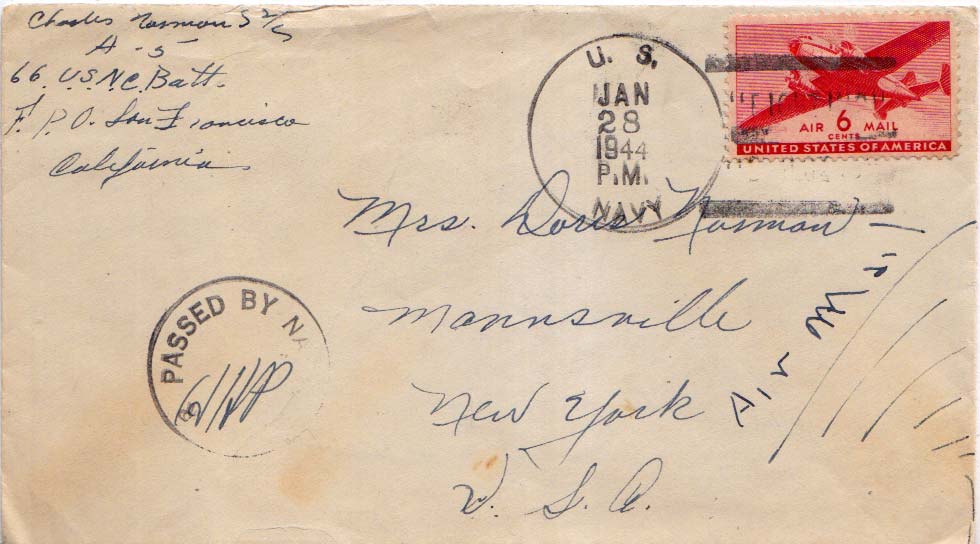 Charles Norman S 2/c
A - 5
66. U.S.N.C. Batt.
F. P. O. San Francisco
California
U. S.
JAN
28
1944
P.M.
NAVY
AIR 6 MAIL
CENTS
UNITED STATES OF AMERICA
Mrs. Doris Norman
Mannsville
New York
U. S. A.
Air Mail
PASSED BY NA